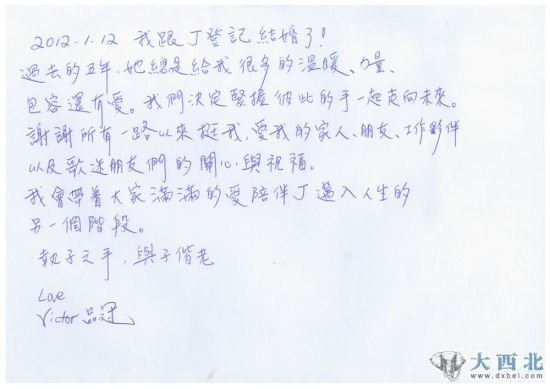 2012.1.12 我跟丁登記結婚了!
過去的五年,她總是給我很多的溫暖、力量、
包容還有愛。我們決定緊握彼此的手一起走向未來。
謝謝所有一路以來挺我,愛我的家人、朋友、工作夥伴
以及歌迷朋友們的關心與祝福。
我會帶着大家滿滿的愛陪伴丁邁入人生的
另一個階段。
執子之手,與子偕老
Love
Victor 品冠
大西北
www.dxbei.com